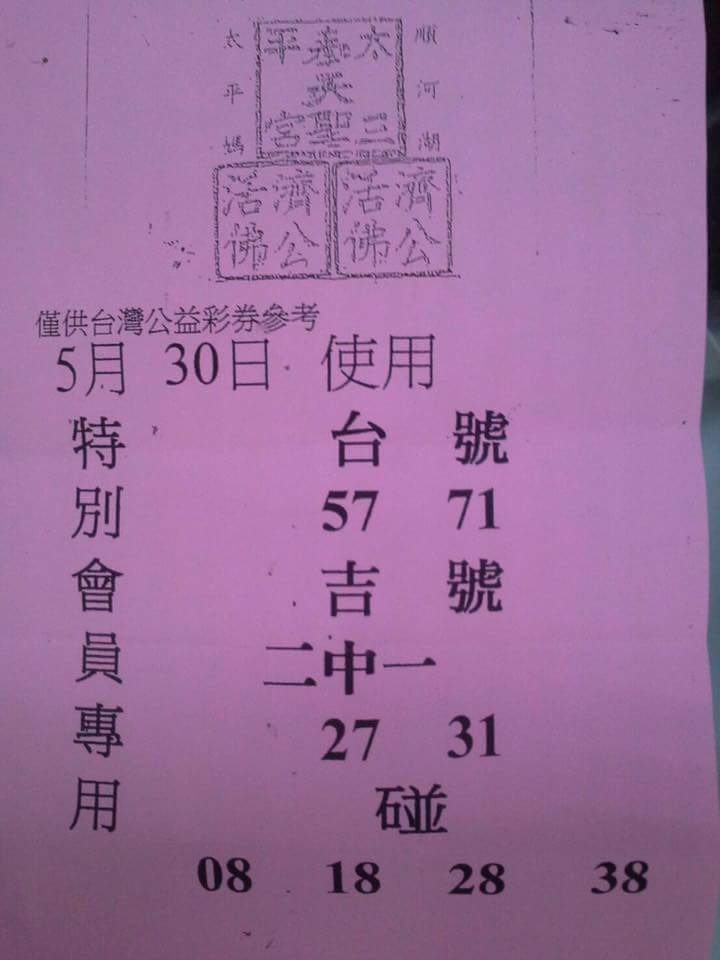 順河湖
太平媽
太
平
三聖宮
濟公活佛
濟公活佛
僅供台灣公益彩券參考
5月 30日 使用
特別會員專用
台 號
57 71
吉 號
二中一
27 31
碰
08 18 28 38